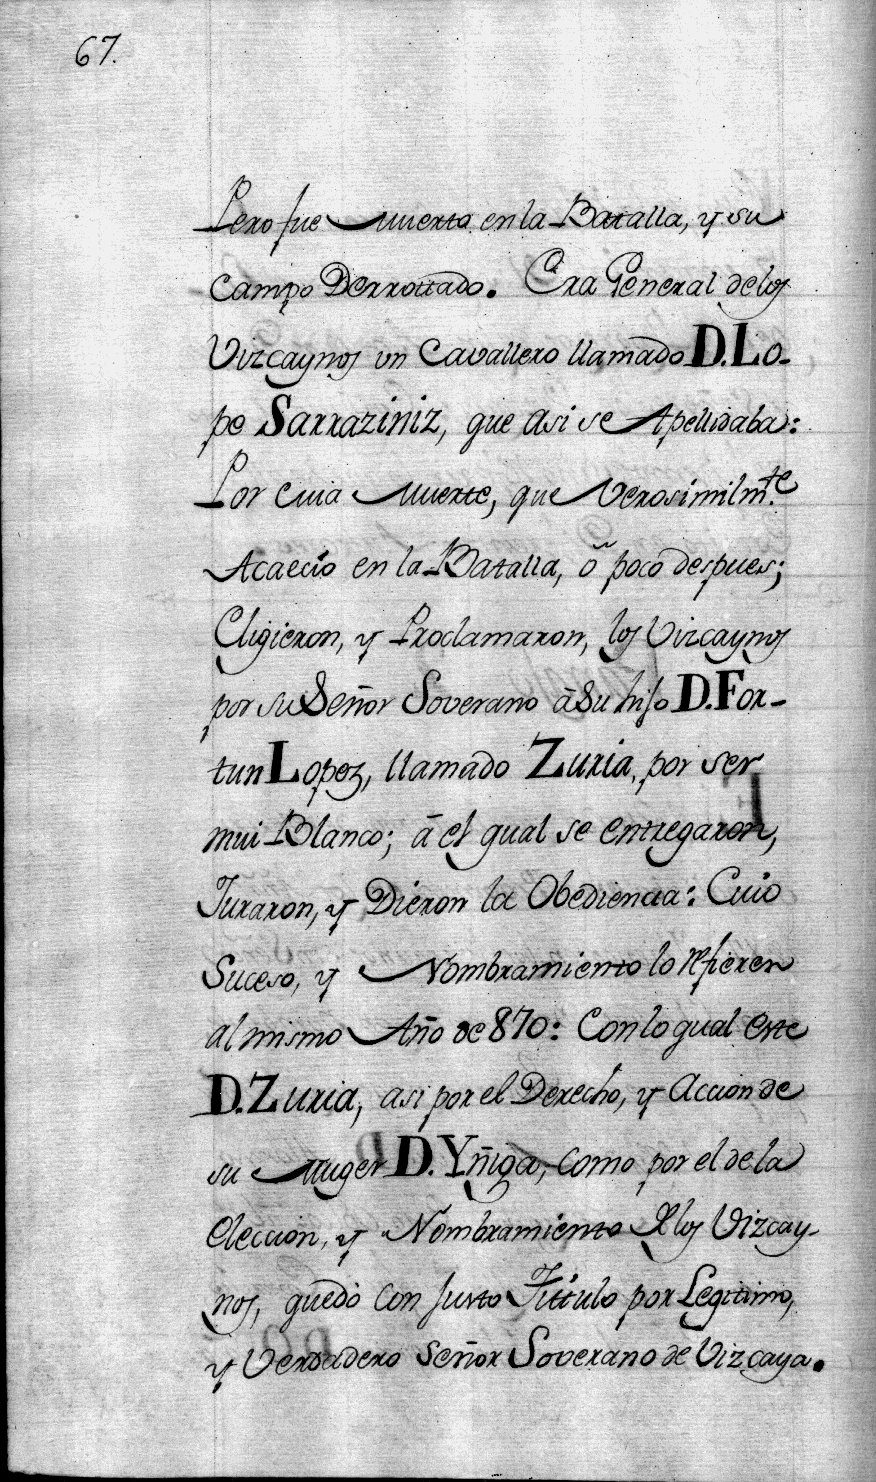 67.
Pero fue Muerto en la Batalla, y su
Campo Derrottado. Era General de los
Vizcaynos un Cavallero llamado D. Lo-
pe Sarraziniz, que asi se Apellidaba:
Por cuia Muerte, que Verosimilm.te
Acaecio en la Batalla, õ poco despues;
Eligieron, y Proclamaron, los Vizcaynos
por su Señor Soverano ã Su hijo D. For-
tun Lopez, llamado Zuria, por ser
mui Blanco; ã el qual se entregaron,
Juraron, y Dieron la Obediencia: Cuio
Suceso, y Nombramiento lo refieren
al mismo Año de 870: Con lo qual este
D. Zuria, asi por el Derecho, y Accion de
su Muger D. Yñiga, como por el de la
Eleccion, y Nombramiento de los Vizcay-
nos, quedó con justo Tittulo por Legitimo,
y Verdadero Señor Soverano de Vizcaya.